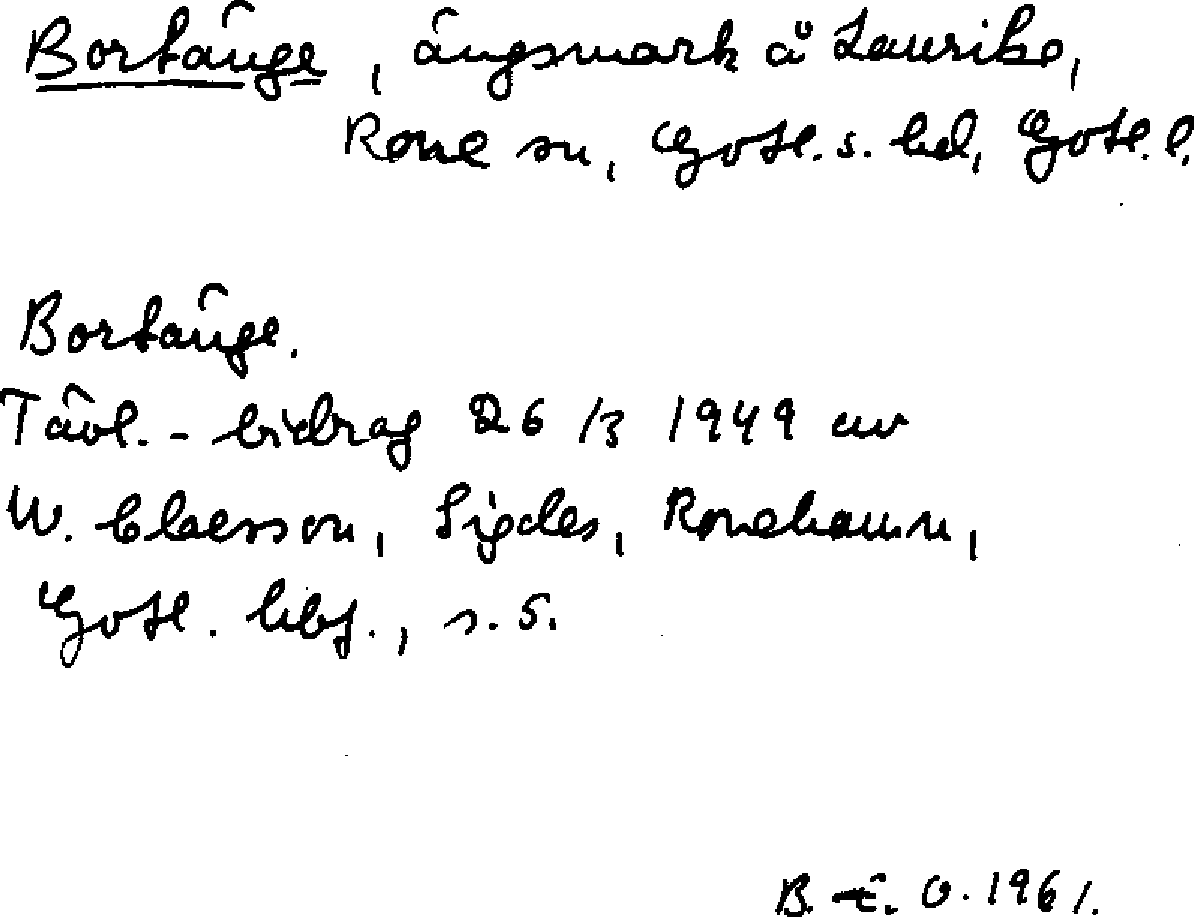 Bortänge, ängsmark å Laurikse,
Rone sn, Gotl. s. hd, Gotl. l.
Bortänge.
Tävl.-bidrag 26/3 1949 av
W. Claesson, Sigdes, Ronehamn,
Gotl. hbf., s. 5.
B. E. O. 1961.